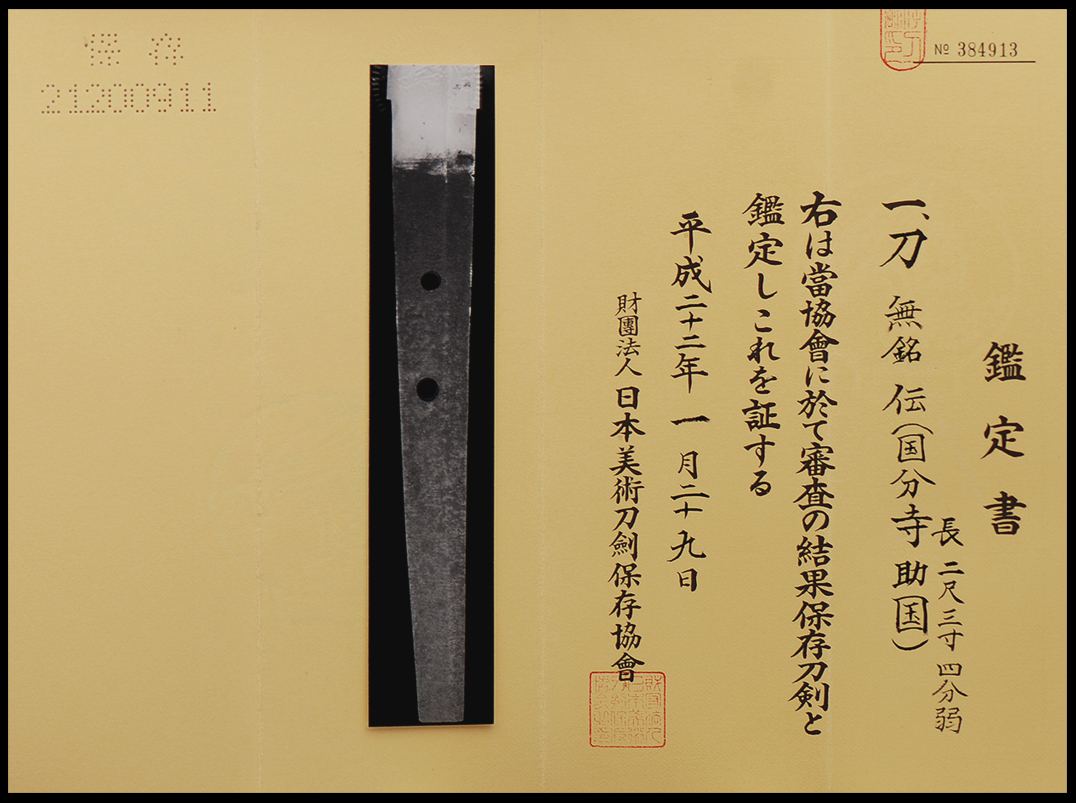 保存
21200911
№ 384913
鑑定書
一、刀 無銘 伝(国分寺助国)
長二尺三寸四分弱
右は當協會に於て審査の結果保存刀剣と
鑑定しこれを証する
平成二十二年一月二十九日
財團法人日本美術刀劍保存協會